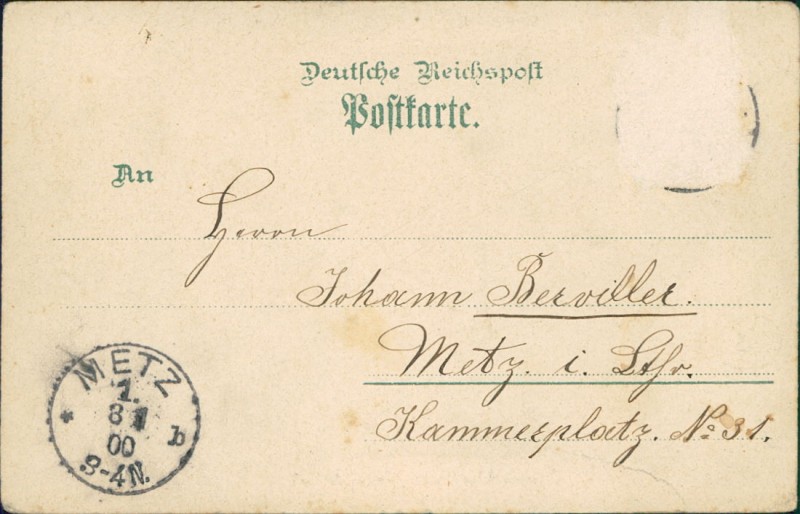 Deutsche Reichspost
Postkarte.
An
Herrn
Johann Berviller.
Metz. i. Lthr.
Kammerplatz. No: 31.
METZ
1.
8
00
3-4N.
* b